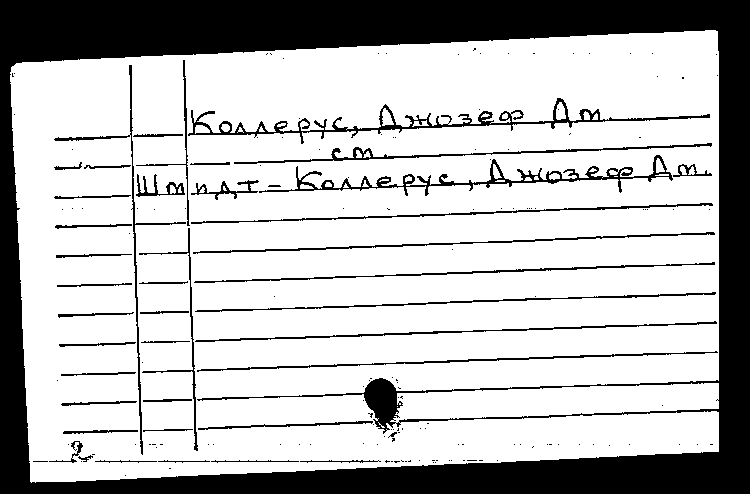 Коллерус, Джозеф Дт.
ст.
Штидт-Коллерус, Джозеф Дт.
2